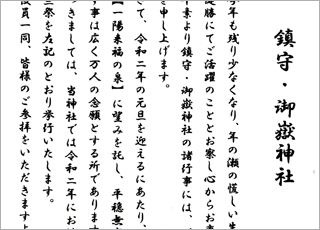 鎮守・御嶽神社
今年も残り少なくなり、年の瀬の慌しい
健勝にてご活躍のこととお察し心からお
素より鎮守・御嶽神社の諸行事には、
申し上げます。
さて、令和二年の元旦を迎えるにあたり、
【一陽来福の泉】に望みを託し、平穏無
事は広く万人の念願とする所であります
つきましては、当神社では令和二年にお
三祭を左記のとおり挙行いたします。
役員一同、皆様のご参拝をいただきますよ